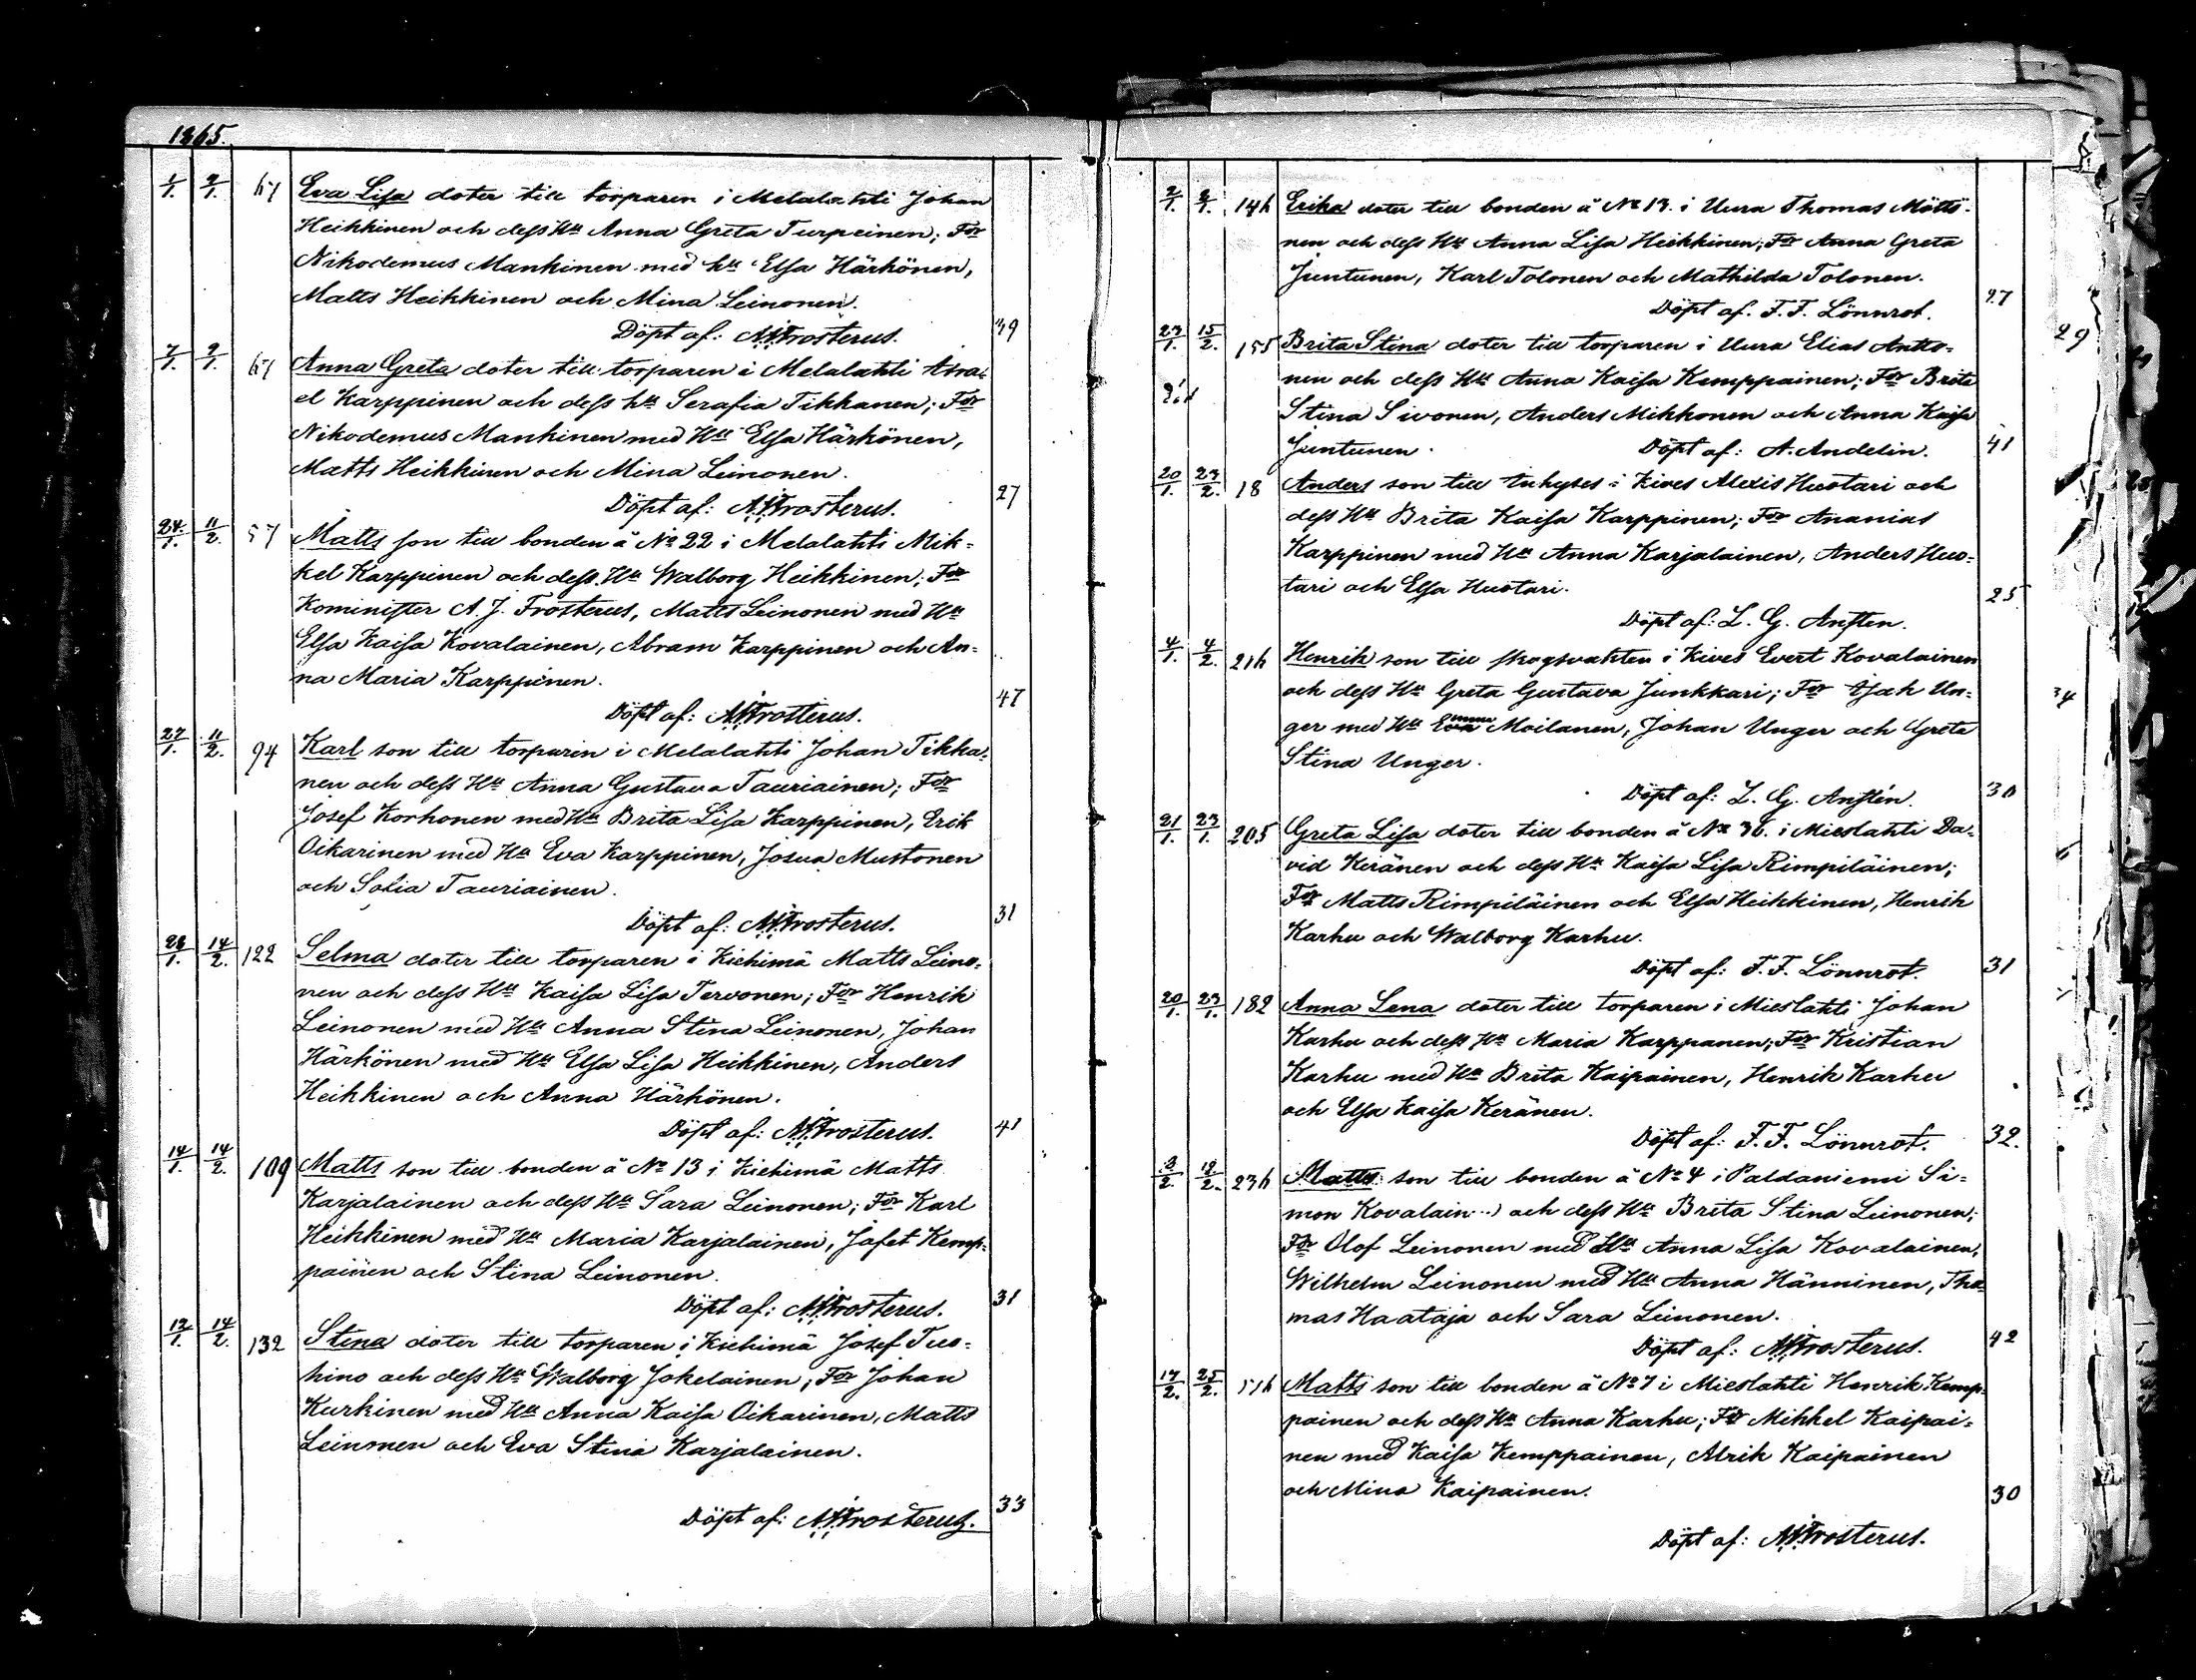 1865.
1/1. 9/1. 67 Eva Lisa doter till torparen i Melalahti Johan
Heikkinen och dess Hu Anna Greta Turpeinen; For
Nikodemus Mankinen med hu Elsa Härkönen,
Matts Heikkinen och Mina Leinonen.
Döpt af: A.J. Frosterus. 39
7/1. 9/1. 67 Anna Greta doter till torparen i Melalahti Abra-
el Karppinen och dess hu Serafia Tikkanen; For
Nikodemus Mankinen med Hu Elsa Härkönen,
Matts Heikkinen och Mina Leinonen.
Döpt af: A.J. Frosterus. 27
24/1. 11/2. 57 Matts son till bonden å No 22 i Melalahti Mik-
kel Karppinen och dess Hu Walborg Heikkinen; For
Kominister A. J. Frosterus, Matts Leinonen med Hu
Elsa Kaisa Kovalainen, Abram Karppinen och An-
na Maria Karppinen.
Döpt af: A.J. Frosterus. 47
27/1. 11/2. 94 Karl son till torparen i Melalahti Johan Tikka-
nen och dess Hu Anna Gustava Tauriainen; For
Josef Korhonen med Hu Brita Lisa Karppinen, Erik
Oikarinen med Hu Eva Karppinen, Josua Mustonen
och Sofia Tauriainen.
Döpt af: A.J. Frosterus. 31
28/1. 14/2. 122 Selma doter till torparen i Kiehimä Matts Leino-
nen och dess Hu Kaisa Lisa Tervonen; For Henrik
Leinonen med Hu Anna Stina Leinonen, Johan
Härkönen med Hu Elsa Lisa Heikkinen, Anders
Heikkinen och Anna Härkönen.
Döpt af: A.J. Frosterus. 41
14/1. 14/2. 109 Matts son till bonden å No 13 i Kiehimä Matts
Karjalainen och dess Hu Sara Leinonen; For Karl
Heikkinen med Hu Maria Karjalainen, Jafet Kemp-
painen och Stina Leinonen.
Döpt af: A.J. Frosterus. 31
12/1. 14/2. 132 Stina doter till torparen i Kiehimä Josef Tuo-
hino och dess Hu Walborg Jokelainen; For Johan
Kurkinen med Hu Anna Kaisa Oikarinen, Matts
Leinonen och Eva Stina Karjalainen.
Döpt af: A.J. Frosterus. 33
2/1. 8/1. 14h Erika doter till bonden å No 13. i Uura Thomas Mött-
nen och dess Hu Anna Lisa Heikkinen; For Anna Greta
Juntunen, Karl Tolonen och Mathilda Tolonen.
Döpt af. F. F. Lönnrot. 27
23/1. 15/2. 155 Brita Stina doter till torparen i Uura Elias Antto-
nen och dess Hu Anna Kaisa Kemppainen; For Brita
Stina Sivonen, Anders Mikkonen och Anna Kaisa
Juntunen. Döpt af: A. Andelin. 41
20/1. 23/2. 18 Anders son till inhyses i Kives Alexis Huotari och
dess Hu Brita Kaisa Karppinen; For Ananias
Karppinen med Hu Anna Karjalainen, Anders Huo-
tari och Elsa Huotari. 25
Döpt af: L. G. Ansten.
4/1. 4/2. 21h Henrik son till skogsvakten i Kives Evert Kovalainen
och dess Hu Greta Gustava Junkkari; For Isak Un-
ger med Hu Emma Moilanen, Johan Unger och Greta
Stina Unger.
Döpt af: L. G. Anstén. 30
21/1. 23/1. 205 Greta Lisa doter till bonden å No 36. i Mieslahti Da-
vid Keränen och dess Hu Kaisa Lisa Rimpiläinen;
For Matts Rimpiläinen och Elsa Heikkinen, Henrik
Karhu och Walborg Karhu.
Döpt af: F. F. Lönnrot. 31
20/1. 23/1. 182 Anna Lena doter till torparen i Mieslahti Johan
Karhu och dess Hu Maria Karppanen; For Kristian
Karhu med Hu Brita Kaipainen, Henrik Karhu
och Elsa Kaisa Keränen.
Döpt af: F. F. Lönnrot. 32.
3/2. 12/2. 23h Matts son till bonden å No 4 i Paldaniemi Si-
mon Kovalain.. och dess Hu Brita Stina Leinonen;
For Olof Leinonen med Hu Anna Lisa Kovalainen,
Wilhelm Leinonen med Hu Anna Hänninen, Tho-
mas Haataja och Sara Leinonen.
Döpt af: A.J. Frosterus. 42
17/2. 25/2. 51h Matts son till bonden å No 7 i Mieslahti Henrik Kemp-
painen och dess Hu Anna Karhu; For Mikkel Kaipai-
nen med Kaisa Kemppainen, Alrik Kaipainen
och Mina Kaipainen. 30
Döpt af: A.J. Frosterus.
29
34